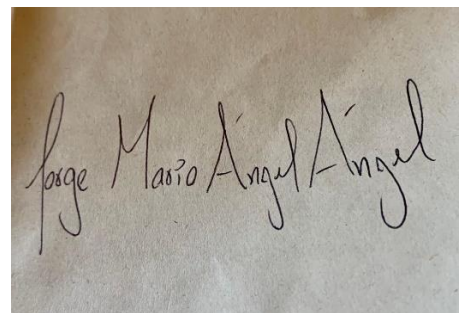 Jorge Mario Ángel Ángel